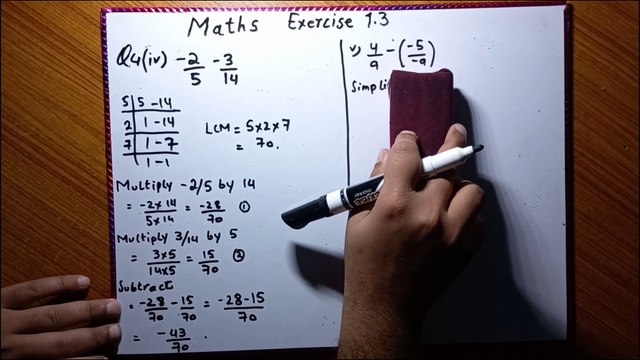 Maths Exercise 1.3
Q4(iv) -2/5 -3/14
5 | 5 - 14
2 | 1 - 14
7 | 1 - 7
1 - 1
LCM = 5×2×7
= 70.
Multiply -2/5 by 14
= -2×14/5×14 = -28/70 ①
Multiply 3/14 by 5
= 3×5/14×5 = 15/70 ②
Subtract
= -28/70 - 15/70 = -28-15/70
= -43/70 .
v) 4/9 - (-5/-9)
Simpli